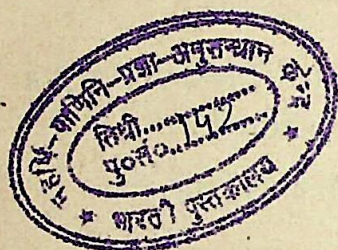 महर्षि-पाणिनि-प्रज्ञा-अनुसन्धान केन्द्र
तिथी..................
पु०सं०....142..........
* भारती पुस्तकालय *